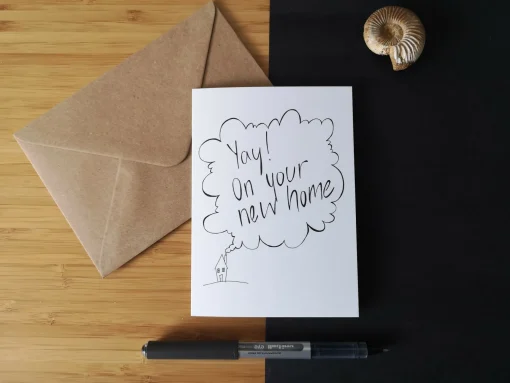 Yay!
On your
new home